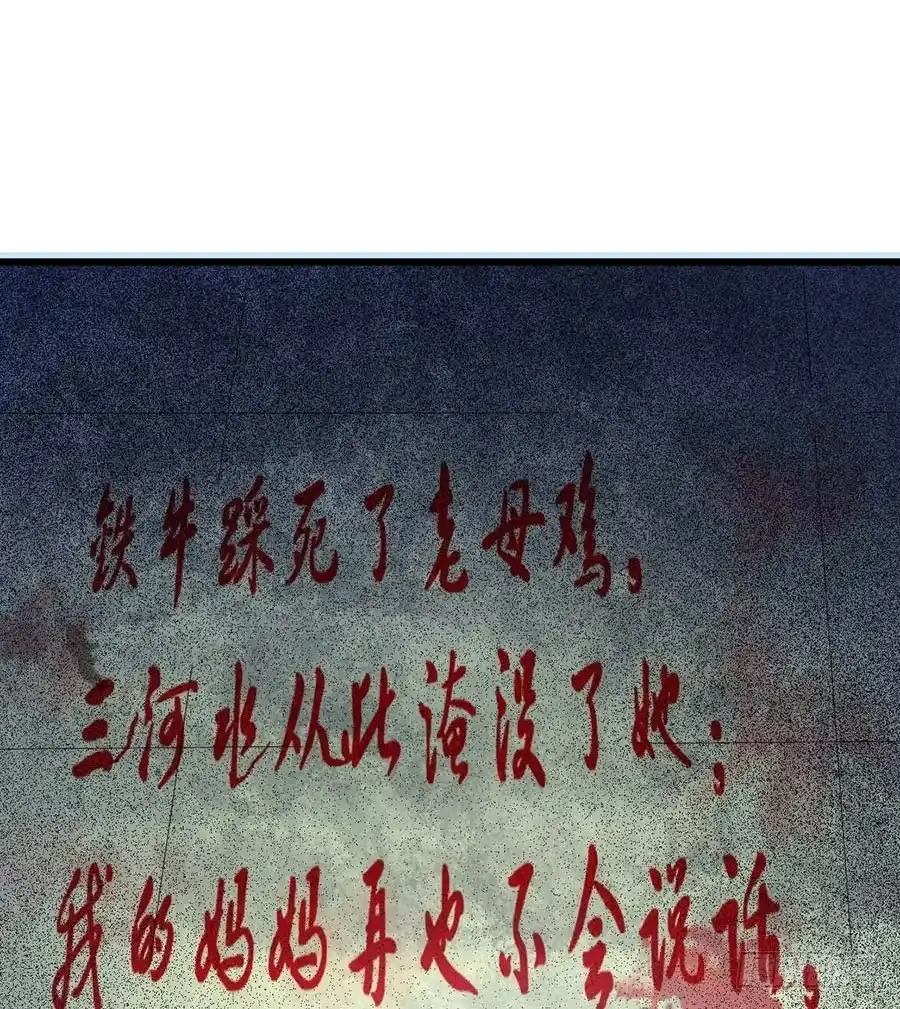 铁牛踩死了老母鸡，
三河水从此淹没了她；
我的妈妈再也不会说话，